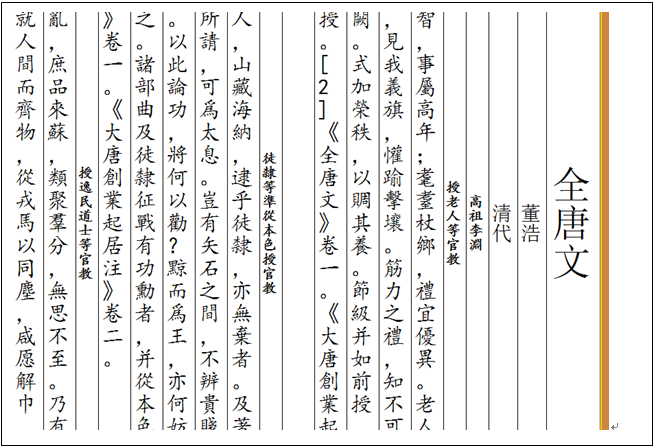 全唐文
董浩
清代
高祖李淵
授老人等官教
智,事屬高年;耄耋杖鄉,禮宜優異。老人
,見我義旗,懽踰擊壤。筋力之禮,知不可
闕。式加榮秩,以賙其養。節級并如前授
授。[2]《全唐文》卷一。《大唐創業起
徒隸等準從本色授官教
人,山藏海納,逮乎徒隸,亦無棄者。及著
所請,可爲太息。豈有矢石之間,不辨貴賤
。以此論功,將何以勸?黥而爲王,亦何妨
之。諸部曲及徒隸征戰有功勳者,并從本色
》卷一。《大唐創業起居注》卷二。
授逸民道士等官教
亂,庶品來蘇,類聚羣分,無思不至。乃有
就人間而齊物,從戎馬以同塵,咸愿解巾